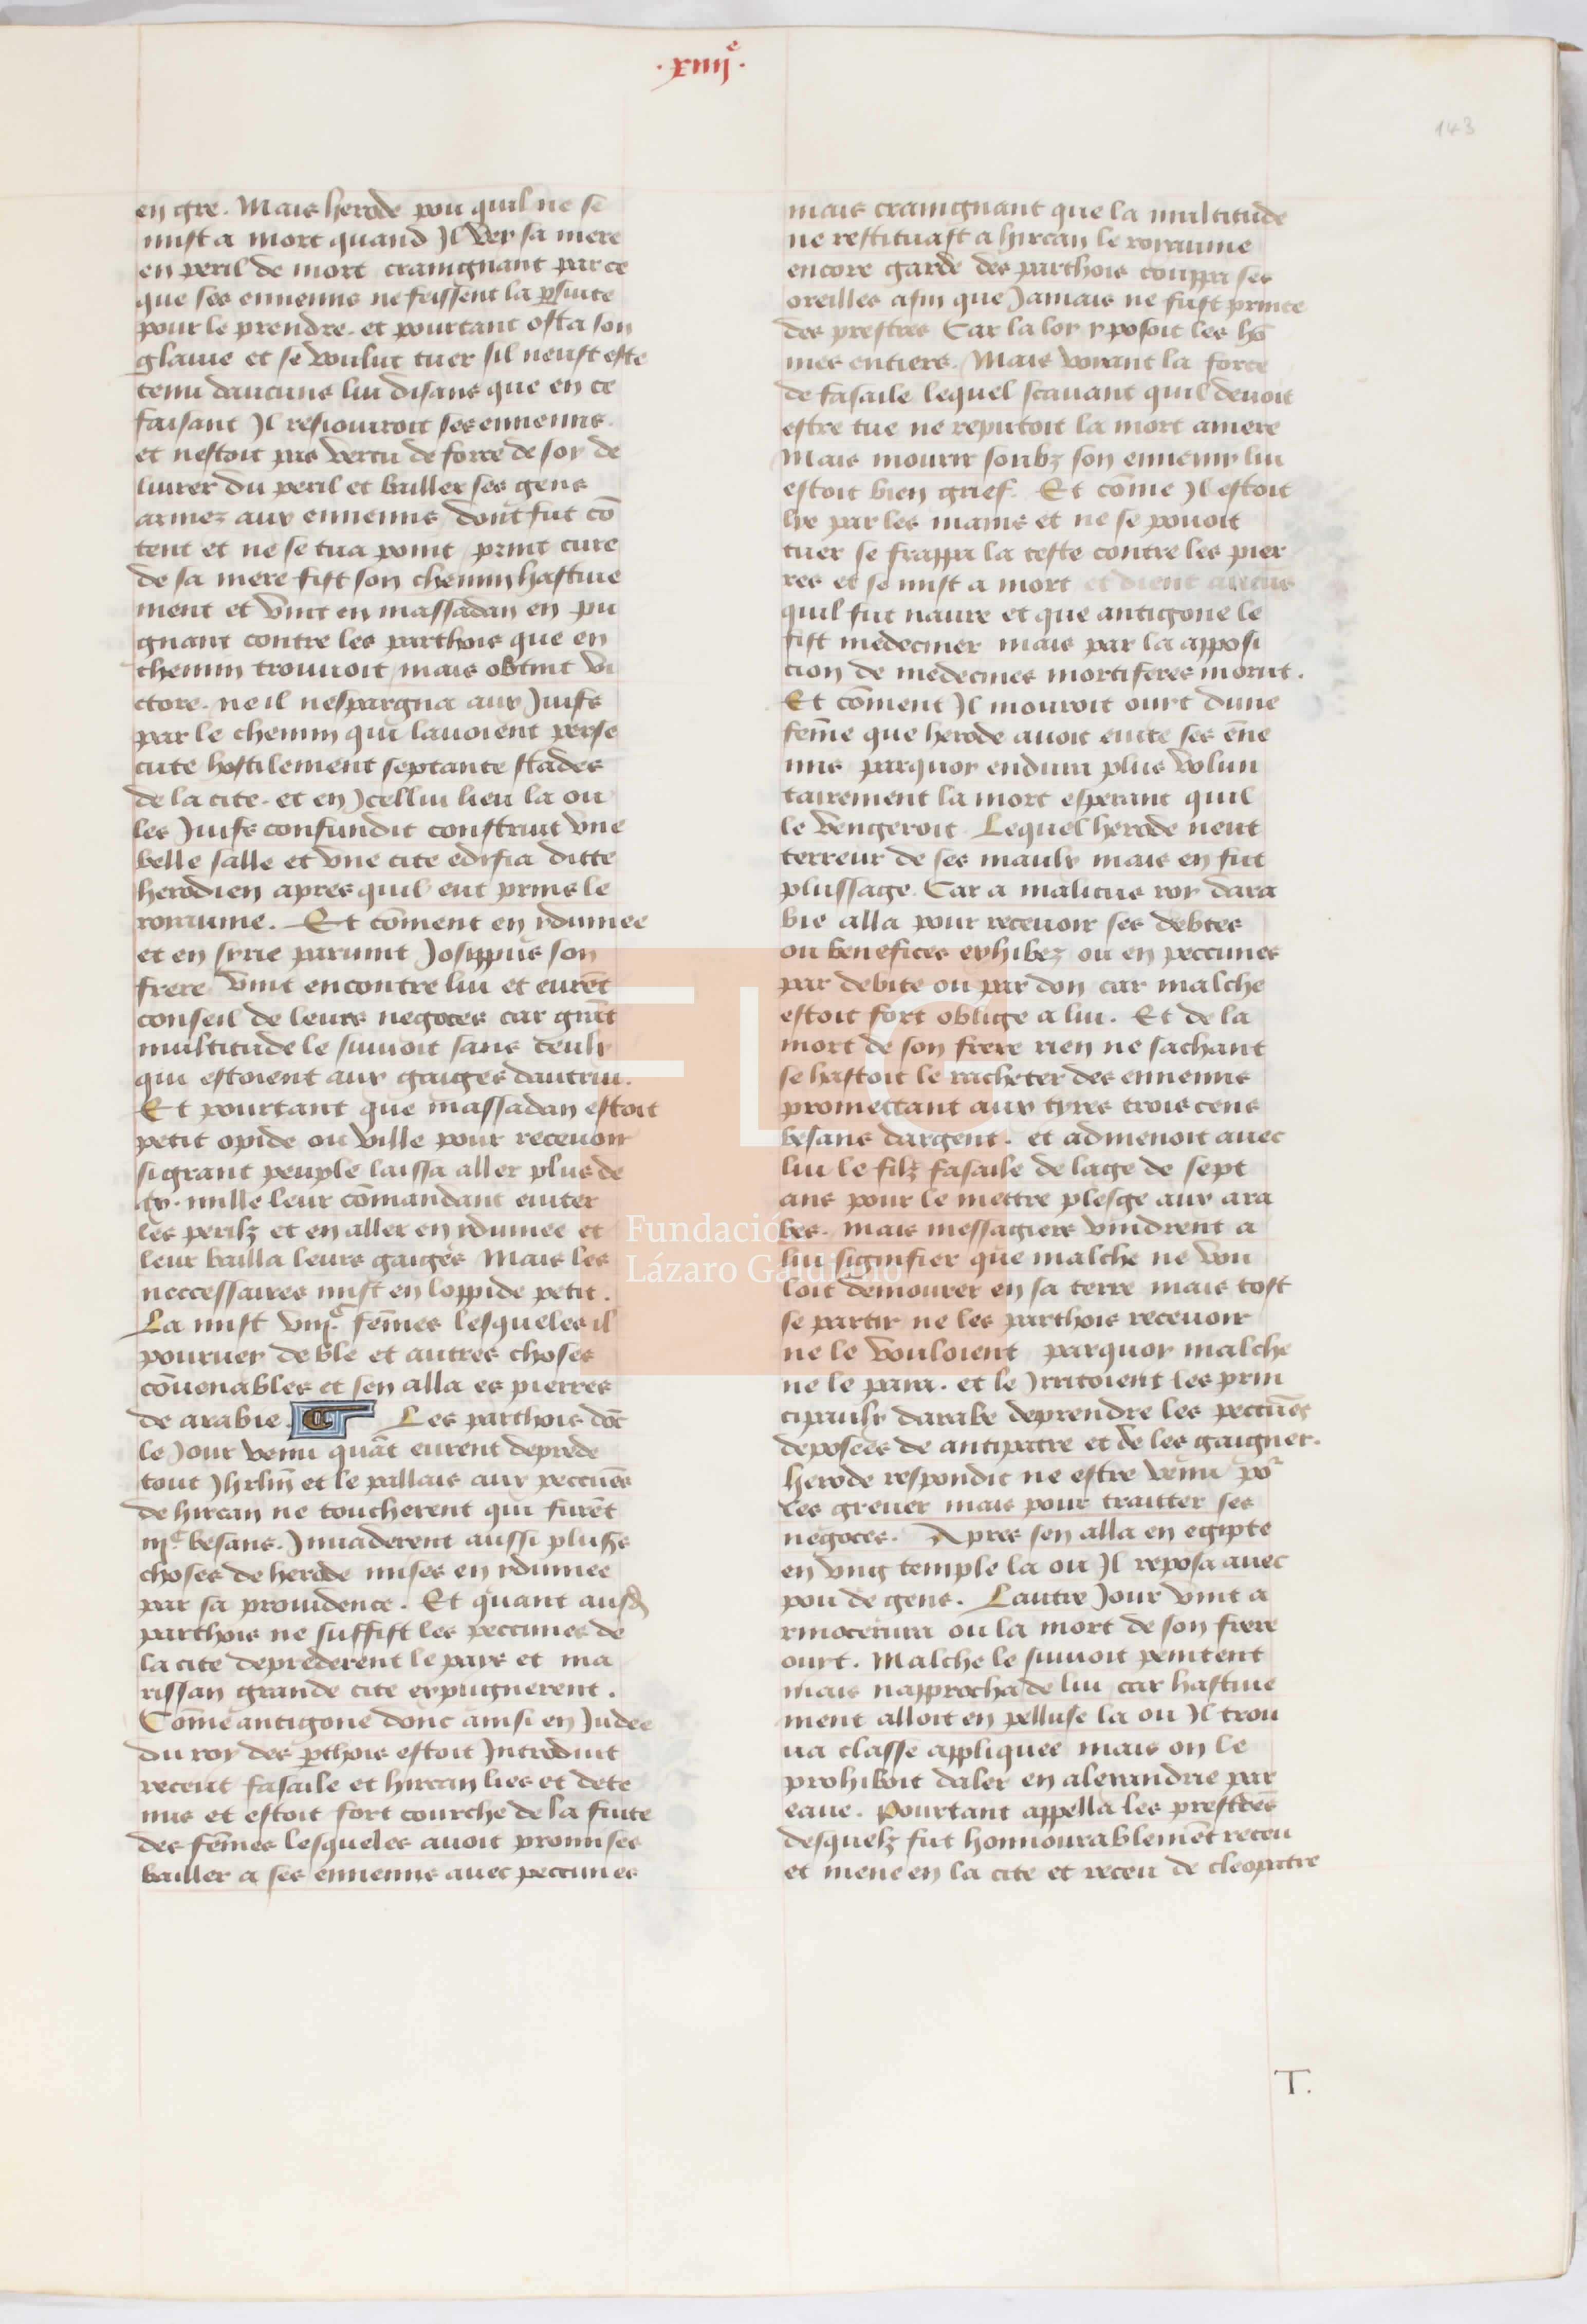 .xiiijᵉ.
143
en gre. Mais herode pou quil ne se
mist a mort quand Jl vey sa mere
en peril de mort craingnant par ce
que ses ennemis ne feissent la ꝑsuite
pour le prendre. et pourtant osta son
glaiue et se voulut tuer sil neust este
tenu daucuns lui disans que en ce
faisant Jl resiouiroit ses ennemis.
et nestoit pas vertu de force de soy de
liurer du peril et bailler ses gens
armez aux ennemis dont fut cō
tent et ne se tua point print cure
de sa mere fist son chemin hastiue
ment et vint en massadan en pu
gnant contre les parthois que en
chemin trouuoit mais obtint vi
ctore. ne il nespargna aux Juifs
par le chemin qui lauoient perse
cute hostilement septante stades
de la cite. et en Jcellui lieu la ou
les Juifs confundit construit vne
belle salle et vne cite edifia ditte
herodien apres quil eut prins le
royaume. Et cōment en ydumee
et en syrie paruint Josippus son
frere vint encontre lui et eurēt
conseil de leurs negoces car grāt
multitude le suiuoit sans ceulx
qui estoient aux gaiges dautrui.
Et pourtant que massadan estoit
petit opide ou ville pour receuoir
si grant peuple laissa aller plus de
ix. mille leur cōmandant euiter
les perilz et en aller en ydumee et
leur bailla leurs gaiges Mais les
neccessaires mist en loppide petit.
La mist viijᶜ fēmes lesqueles il
pouruer de ble et autres choses
cōuenables et sen alla es pierres
de arabie. Les parthois dōc
le Jour venu quāt eurent deprede
tout Jhrlm̄ et le pallais aux peccuēs
de hircan ne toucherent qui furēt
iijᶜ besans. Jnuaderent aussi plus̉s
choses de herode mises en ydumee
par sa prouidence. Et quant ausd̉
parthois ne suffist les peccunes de
la cite deprederent le pays et ma
rissan grande cite expugnerent.
Cōme antigone donc ainsi en Judee
du roy des ꝑthois estoit Jntroduit
receut fasaile et hircan lies et dete
nus et estoit fort courche de la fuite
des fēmes lesqueles auoit promises
bailler a ses ennemis auec peccunes
mais craingnant que la multitude
ne restituast a hircan le royaume
encore garde des parthois couppa ses
oreilles afin que Jamais ne fust prince
des prestres Car la loy y posoit les hō
mes entiers. Mais voyant la force
de fasaile lequel scauant quil deuoit
estre tue ne reputoit la mort amere
Mais mourir soubz son ennemy lui
estoit bien grief. Et cōme Jl estoit
lye par les mains et ne se pouoit
tuer se frappa la teste contre les pier
res et se mist a mort et dient aucūs
quil fut naure et que antigone le
fist medeciner mais par la apposi
cion de medecines mortiferes morut.
Et cōment Jl mouroit ouyt dune
fēme que herode auoit euite ses ēne
mis parquoy endura plus volun
tairement la mort esperant quil
le vengeroit. Lequel herode neut
terreur de ses maulx mais en fut
plussage. Car a malicus roy dara
bie alla pour receuoir ses debtes
ou benefices exhibez ou en peccunes
par debite ou par don car malche
estoit fort oblige a lui. Et de la
mort de son frere rien ne sachant
se hastoit le racheter des ennemis
promettant aux tyres trois cens
besans dargent. et admenoit auec
lui le filz fasaile de lage de sept
ans pour le mettre plesge aux ara
bes. mais messagiers vindrent a
lui signifier que malche ne vou
loit demourer en sa terre mais tost
se partir ne les parthois receuoir
ne le vouloient parquoy malche
ne le paya. et le Jrritoient les prin
cipaulx darabe deprendre les peccuēs
deposees de antipatre et de les gaigner.
herode respondit ne estre venu poʳ
les greuer mais pour traitter ses
negoces. Apres sen alla en egipte
en vng temple la ou Jl reposa auec
pou de gens. Lautre Jour vint a
rinocerura ou la mort de son frere
ouyt. Malche le suiuoit penitent
mais napprocha de lui car hastiue
ment alloit en pelluse la ou Jl trou
ua classe appliquee mais on le
prohiboit daler en alexandrie par
eaue. Pourtant appella les prestres
desquelz fut honnourablemēt receu
et mene en la cite et receu de cleopatre
T.
FLG
Fundación
Lázaro Galdiano